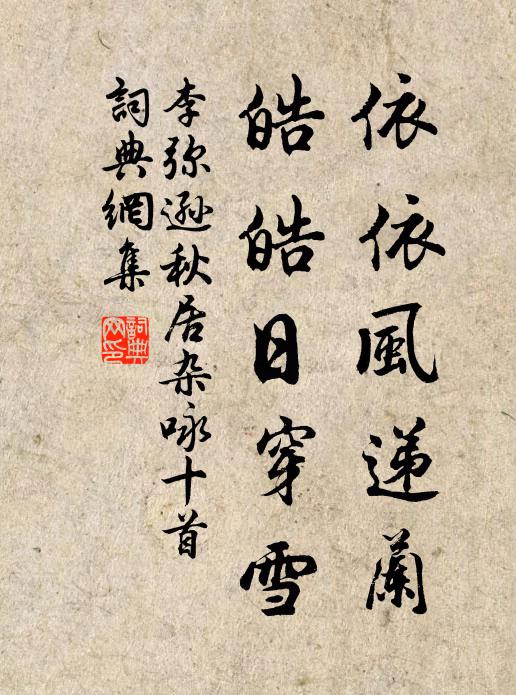 依依風递蘭
皓皓日穿雪
李弥遜秋居杂咏十首
詞典網集
詞典网印